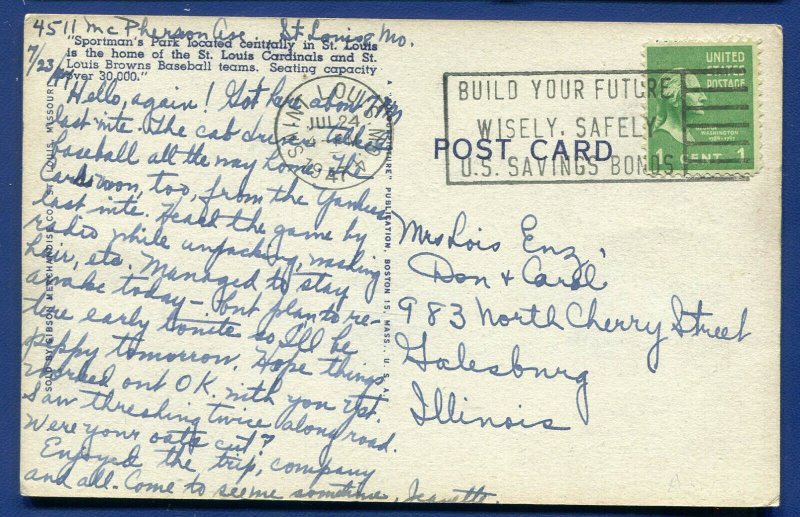 4511 McPherson Ave. St. Louis, Mo.
7/23/47
"Sportman's Park located centrally in St. Louis
is the home of the St. Louis Cardinals and St.
Louis Browns Baseball teams. Seating capacity
over 30,000."
Hello, again! Got here about
last nite. The cab driver talked
baseball all the way home. The
Cards won, too, from the Yankees
last nite. Heard the game by
radio while unpacking, washing
hair, etc. Managed to stay
awake today - but plan to re-
tire early tonite so I'll be
peppy tomorrow. Hope things
worked out O.K. with you
Saw threshing twice along road.
Were your oats cut?
Enjoyed the trip, company
and all. Come to see me sometime, Jeanette
SOLD BY GIBSON MERCHANDISE CO., ST. LOUIS, MISSOURI
PUBLICATION, BOSTON 15, MASS., U. S. A.
SAINT LOUIS, MO.
JUL 24
1947
BUILD YOUR FUTURE
WISELY, SAFELY
U.S. SAVINGS BONDS
POST CARD
UNITED
STATES
POSTAGE
WASHINGTON
1 CENT 1
Mrs Lois Enz,
Don & Carol
983 North Cherry Street
Galesburg
Illinois